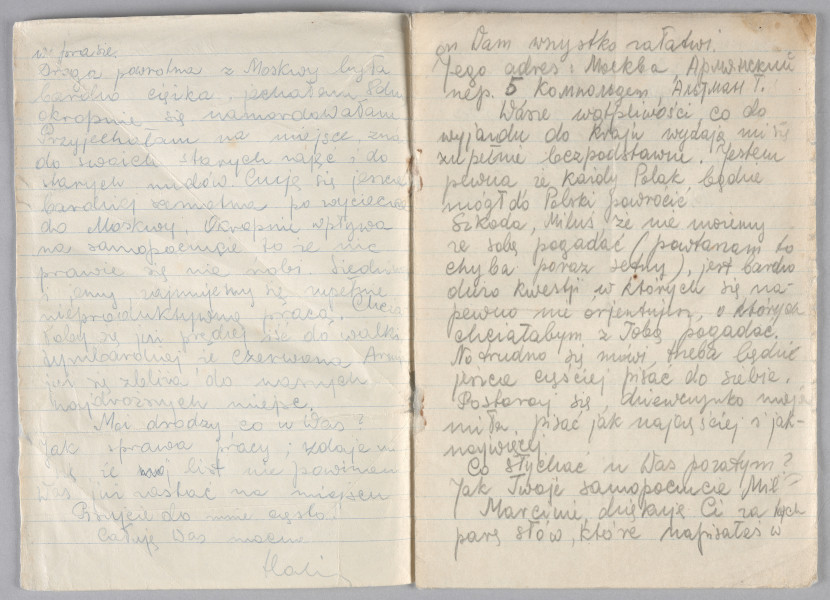 w prasie.
Droga powrotna z Moskwy była
bardzo ciężka. jechałam
okropnie się namordowałam
Przyjechałam na miejsce, znów
do swoich starych zajęć i do
starych nudów. Czuję się jeszcze
bardziej samotna po wycieczce
do Moskwy. Okropnie wpływa
na samopoczucie to że nic
prawie się nie robi. Siedzimy
i jemy, zajmujemy się zupełnie
nieproduktywną pracą. Chcia-
łoby się już prędzej iść do walki
tymbardziej że Czerwona Armja
już się zbliża do naszych
najdroższych miejsc.
Moi drodzy co u Was?
Jak sprawa pracy; zdaje mi
się że mój list nie powinien
Was już zastać na miejscu
Piszcie do mnie często!
Całuję Was mocno
on Wam wszystko załatwi.
Jego adres: Москва, Армянский
пер. 5 Комнользет, Альтман Г.
Wasze wątpliwości, co do
wyjazdu do kraju wydają mi się
zupełnie bezpodstawne. Jestem
pewna że każdy Polak będzie
mógł do Polski powrócić.
Szkoda, Miluś, że nie możemy
ze sobą pogadać (powtarzam to
chyba poraz setny), jest bardzo
dużo kwestji, w których się na-
pewno nie orjentujesz, o których
chciałabym z Tobą pogadać.
No trudno się mówi, trzeba będzie
jeszcze częściej pisać do siebie.
Postaraj się, dziewczynko moja
miła, pisać jak najczęściej i jak-
najwięcej.
Co słychać u Was pozatym?
Jak Twoje samopoczucie Mil
Marcinie, dziękuję Ci za tych
parę słów, które napisałeś w